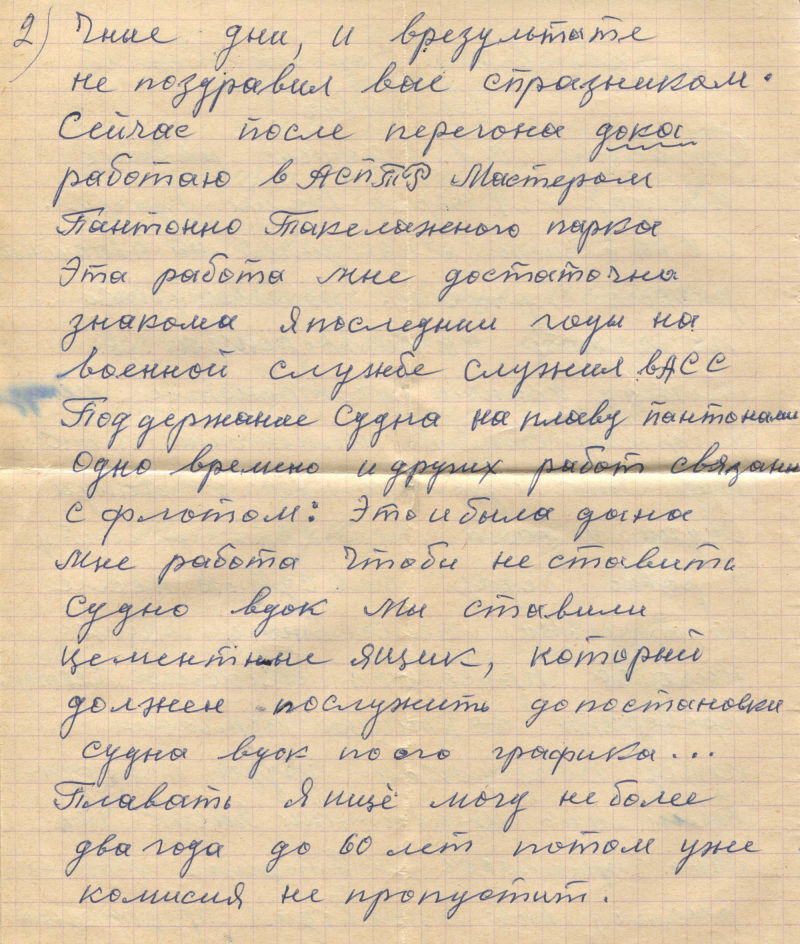 2) Чние дни, и врезультате
не поздравил вас спразником.
Сейчас после перегона дока
работаю в АСПТР Мастером
Пантонно Такелажного парка
Эта работа мне достаточна
знакома я последнии годы на
военной службе служил в АСС
Поддержание Судна на плаву пантонами
Одно времено и других работ связани
с флотом: Это и была дана
Мне работа Чтоби не ставить
Судно вдок Мы ставили
цементные ящик, который
должен послужить до постановки
судна вдок по его графика...
Плавать я ищё могу не более
два года до 60 лет потом уже
комисия не пропустит.